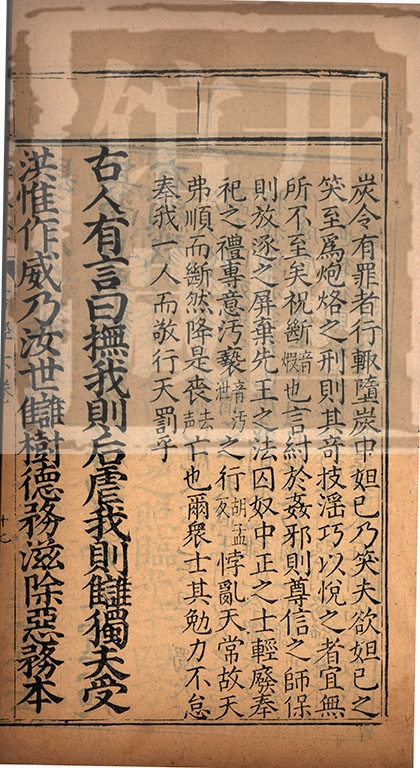 炭令有罪者行輒墮炭中妲己乃笑夫欲妲己之
笑至爲炮烙之刑則其奇技滛巧以悅之者宜無
所不至矣祝斷音也言紂於姦邪則尊信之師保
則放逐之屏棄先王之法囚奴中正之士輕廢奉
祀之禮專意汚褻音汚泄之行胡孟反悖亂天常故天
弗順而斷然降是喪去声亡也爾衆士其勉力不怠
奉我一人而敬行天罰乎
古人有言曰撫我則后虐我則讎獨夫受
洪惟作威乃汝世讎樹德務滋除惡務本